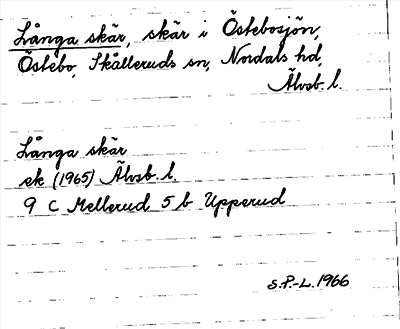 Långa skär, skär i Östebosjön,
Östebo, Skålleruds sn, Nordals hd,
Älvsb. l.
Långa skär
ek (1965) Älvsb. l.
9 C Mellerud 5 b Upperud
S.P.-L. 1966